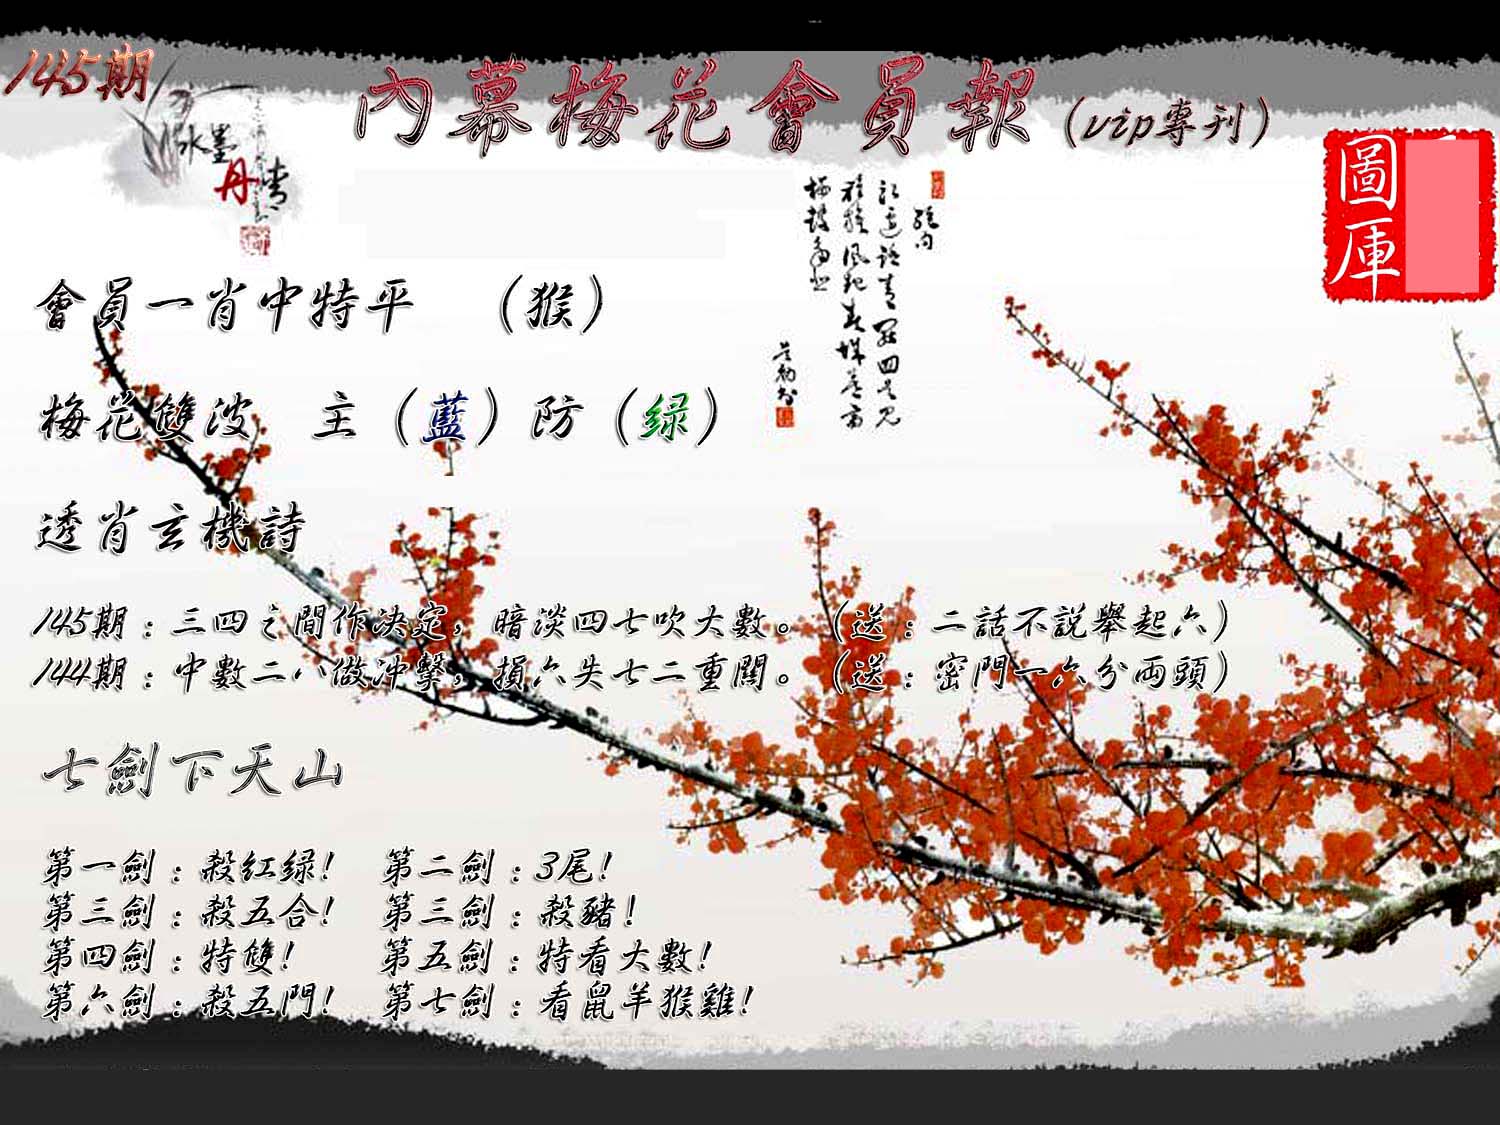 145期
內幕梅花會員報(vip專刊)
水墨
丹青
圖庫
會員一肖中特平 (猴)
梅花雙波 主(藍)防(绿)
透肖玄機詩
145期:三四之間作決定,暗淡四七吹大數。(送:二話不説舉起六)
144期:中數二八做冲擊,損六失七二重關。(送:密門一六分兩頭)
七劍下天山
第一劍:殺红绿! 第二劍:3尾!
第三劍:殺五合! 第三劍:殺豬!
第四劍:特雙! 第五劍:特看大數!
第六劍:殺五門! 第七劍:看鼠羊猴雞!